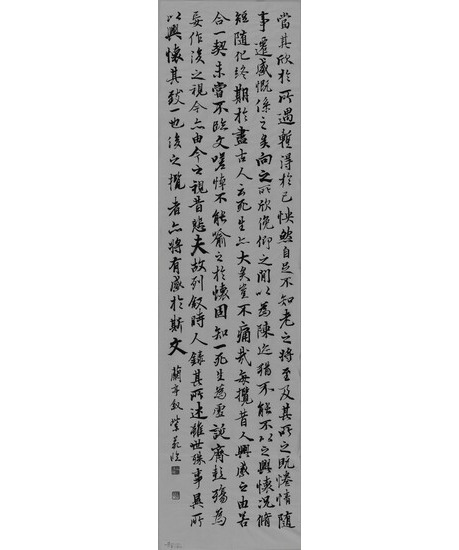 當其欣於所遇暫得於己怏然自足不知老之將至及其所之既惓情隨
事遷感慨係之矣向之所欣俛仰之間以為陳迹猶不能不以之興懷況脩
短隨化終期於盡古人云死生亦大矣豈不痛哉每攬昔人興感之由若
合一契未嘗不臨文嗟悼不能喻之於懷固知一死生為虛誕齊彭殤為
妄作後之視今亦由今之視昔悲夫故列敘時人錄其所述雖世殊事異所
以興懷其致一也後之攬者亦將有感於斯文 蘭亭敘 臨